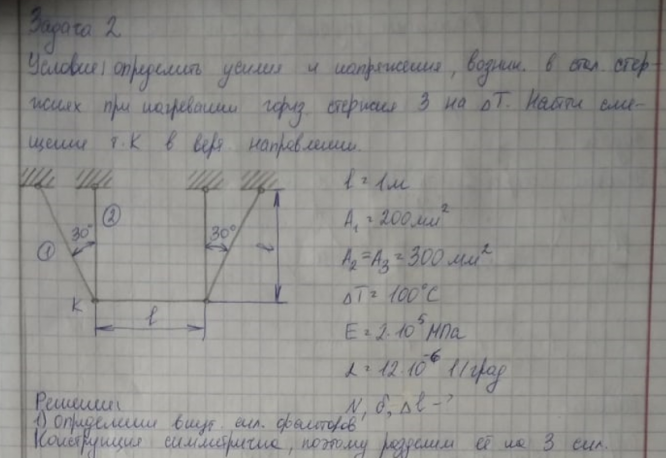 Задача 2
Условие: определить усилия и напряжения, возник. в стал. стер-
жнях при нагревании гориз. стержня 3 на ΔT. Найти сме-
щение т. К в верт направлении.
② 
30°
30°
①
l
К
l
l = 1м
A₁ = 200 мм²
A₂ = A₃ = 300 мм²
ΔT = 100°C
E = 2·10⁵ МПа
α = 12·10⁻⁶ 1/град
N, σ, Δl - ?
Решение:
1) Определим внут. сил. факторов
Конструкция симметрична, поэтому разделим её на 3 сил.